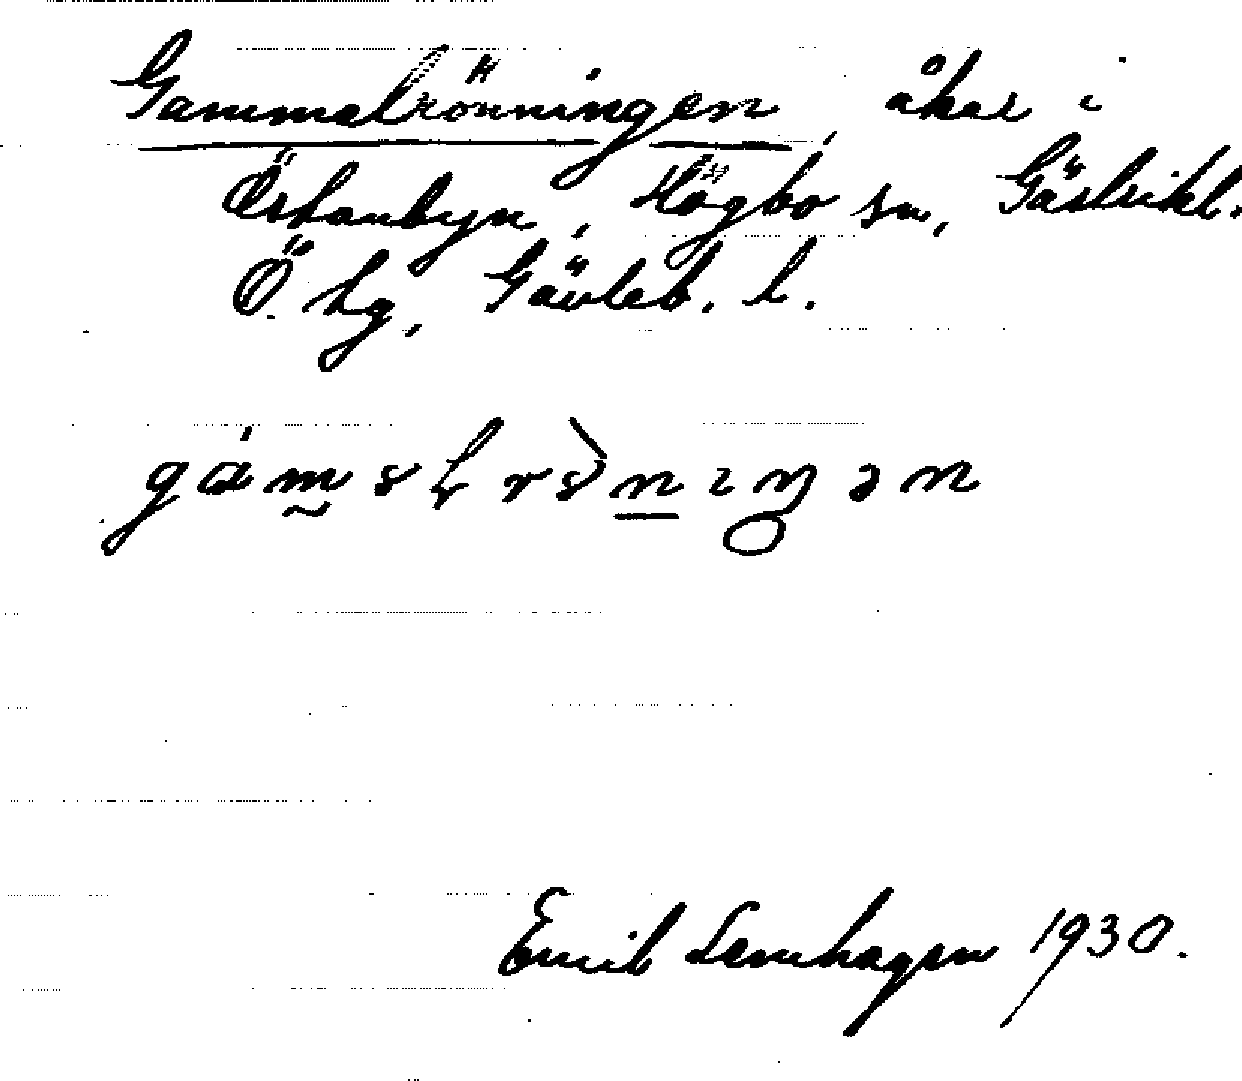 Gammelrönningen, åker i
Östanbyn, Högbo sn, Gästrikl.
Ö. hg, Gävleb. l.
Emil Lenhagen 1930.